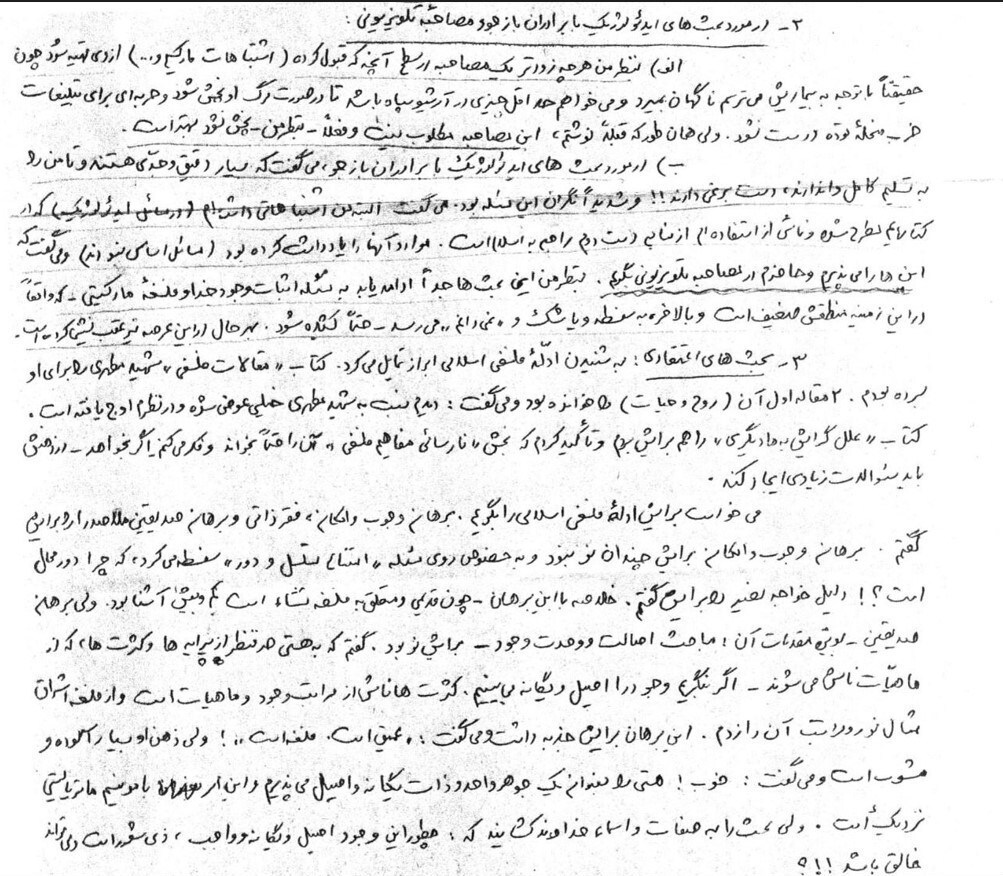 ۲- در مورد بحث‌های ایدئولوژیک با برادران بازجو و مصاحبهٔ تلویزیونی:
الف) بنظر من هرچه زودتر یک مصاحبه در سطح آنچه که قبول کرده (اشتباهات مارکسیسم و...) از وی تهیه شود چون
حقیقتاً با توجه به بیماریش می‌ترسم ناگهان بمیرد و می‌خواهم حداقل چیزی در آرشیو سپاه باشد تا در صورت مرگ او پخش شود و حربه‌ای برای تبلیغات
حزب منحلهٔ توده درست نشود. ولی همان طور که قبلاً نوشتم، این مصاحبه مطلوب نیست و فعلاً - بنظر من - پخش نشود بهتر است.
ب) در مورد بحث های ایدئولوژیک با برادران بازجو، می‌گفت که بسیار دقیق و جدّی هستند و تا من را
به تسلیم کامل وادارند، دست برنمی دارند!! و شدیداً نگران این مسئله بود. می‌گفت البته من اشتباهاتی داشته‌ام (در مسائل ایدئولوژیک) که در
کتابهایم مطرح شده و ناشی از استفاده‌ام از منابع دست دوم راجع به اسلام است. موارد آنها را یادداشت کرده بود (مسائل اساسی نبودند) و می‌گفت که
این ها را می پذیرم و حاضرم در مصاحبه تلویزیونی بگویم. بنظر من این بحث‌ها جداً ادامه یابد به مسئله اثبات وجود خدا و فلسفهٔ مارکسیستی - که واقعاً
در این زمینه منطقش ضعیف است و بالاخره به سفسطه و یا شک و «نمی دانم» می رسد - حتماً کشیده شود. بهرحال در این عرصه نیز عقب نشینی کرده است.
۳- بحث های اعتقادی: به شنیدن ادلّهٔ فلسفی اسلامی ابراز تمایل می‌کرد. کتاب «مقالات فلسفی» شهید مطهری را برای او
برده بودم. ۲ مقاله اول آن (روح و حیات) را خوانده بود و می‌گفت: دیدم نسبت به شهید مطهری خیلی عوض شده و در نظرم اوج یافته است.
کتاب «علل گرایش به مادیگری» را هم برایش بردم و تأکید کردم که بخش «نارسائی مفاهیم فلسفی» آن را حتماً بخواند و فکر می‌کنم اگر بخواهد - در ذهنش
باید سئوالات زیادی ایجاد کند.
می خواست برایش ادلهٔ فلسفی اسلامی را بگویم. برهان وجوب و امکان، فقر ذاتی و برهان صدیقین ملاصدرا را برایش
گفتم. برهان وجوب و امکان برایش چندان نو نبود و به خصوص روی مسئله «امتناع تسلسل و دور» سفسطه می‌کرد، که چرا دور محال
است؟! دلیل خواجه نصیر را برایش گفتم. خلاصه با این برهان - چون قدیمی و متعلق به فلسفه مشاء است کم و بیش آشنا بود. ولی برهان
صدیقین - بویژه مقدمات آن: مباحث اصالت و وحدت وجود - برایش نو بود. گفتم که به هستی صرفنظر از پیرایه ها و کثرت ها، که از
ماهیّات ناشی می شوند - اگر بنگریم وجود را اصیل و یگانه می بینیم. کثرت ها ناشی از مراتب وجود و ماهیات است و از فلسفه اشراق
مثال نور و مراتب آن را زدم. این برهان برایش جذبه داشت و می‌گفت: «عمیق است. فلسفه است»! ولی ذهن او بسیار آلوده و
مشوب است و می‌گفت: خوب! هستی را بعنوان یک جوهر واحد و ذات یگانه و اصیل می پذیریم و این با مونیسم ماتریالیستی
نزدیک است. ولی بحث را به صفات و اسماء خداوند کشانید که: چطور این وجود اصیل و یگانه و واجب، ذی شعور است و می تواند
خالق باشد!!؟